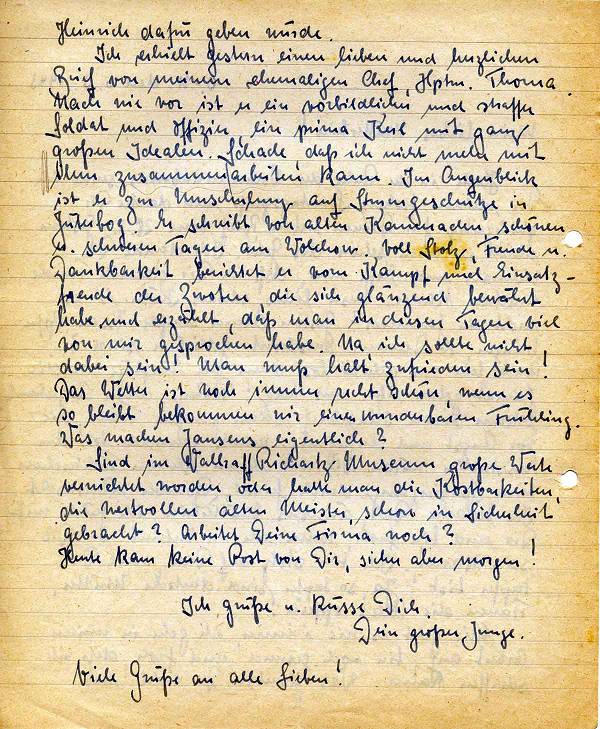 Heinrich dafür geben würde.
Ich erhielt gestern einen lieben und herzlichen
Brief von meinem ehemaligen Chef, Hptm. Thoma.
Nach wie vor ist er ein vorbildlicher und straffer
Soldat und Offizier, ein prima Kerl mit ganz
großen Idealen. Schade, daß ich nicht mehr mit
ihm zusammenarbeiten kann. Im Augenblick
ist er zur Umschulung auf Sturmgeschütze in
Jüterbog. Er schreibt von alten Kameraden, schönen
u. schweren Tagen am Wolchow. Voll Stolz, Freude u.
Dankbarkeit berichtet er vom Kampf und Einsatz-
freude der Zwoten, die sich glänzend bewährt
habe und erzählt, daß man in diesen Tagen viel
von mir gesprochen habe. Na, ich sollte nicht
dabei sein! Man muß halt zufrieden sein!
Das Wetter ist noch immer recht schön, wenn es
so bleibt bekommen wir einen wunderbaren Frühling.
Was machen Jansens eigentlich?
Sind im Wallraff Richartz Museum große Werte
vernichtet worden oder hatte man die Kostbarkeiten,
die wertvollen alten Meister, schon in Sicherheit
gebracht? Arbeitet Deine Firma noch?
Heute kam keine Post von Dir, sicher aber morgen!
Ich grüße u. küsse Dich.
Dein großer Junge.
Viele Grüße an alle Lieben!